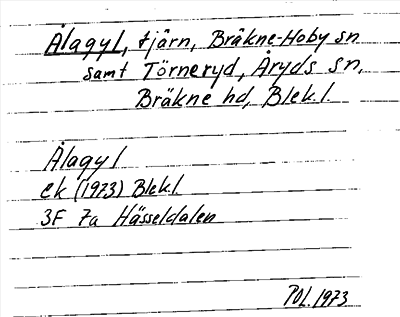 Ålagyl, tjärn, Bräkne-Hoby sn
samt Törneryd, Åryds sn,
Bräkne hd, Blek.l.
Ålagyl
ek (1973) Blekl.
3F 7a Hässeldalen
POL. 1973